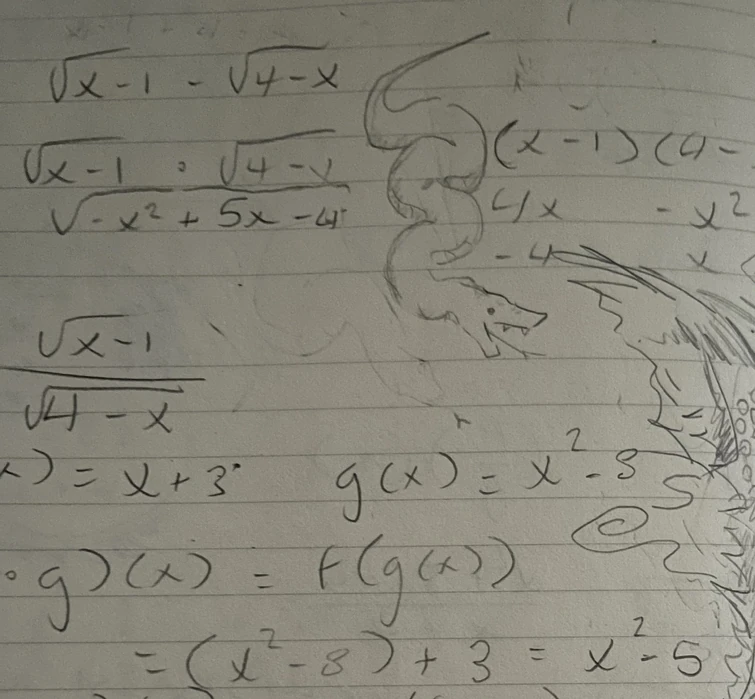 √x-1 - √4-x
√x-1 · √4-x (x-1)(4-
√-x² + 5x -4 4x - x²
-4 x
√x-1
√4-x
x) = x+3 g(x) = x²-8
∘g)(x) = f(g(x))
= (x²-8) + 3 = x²-5